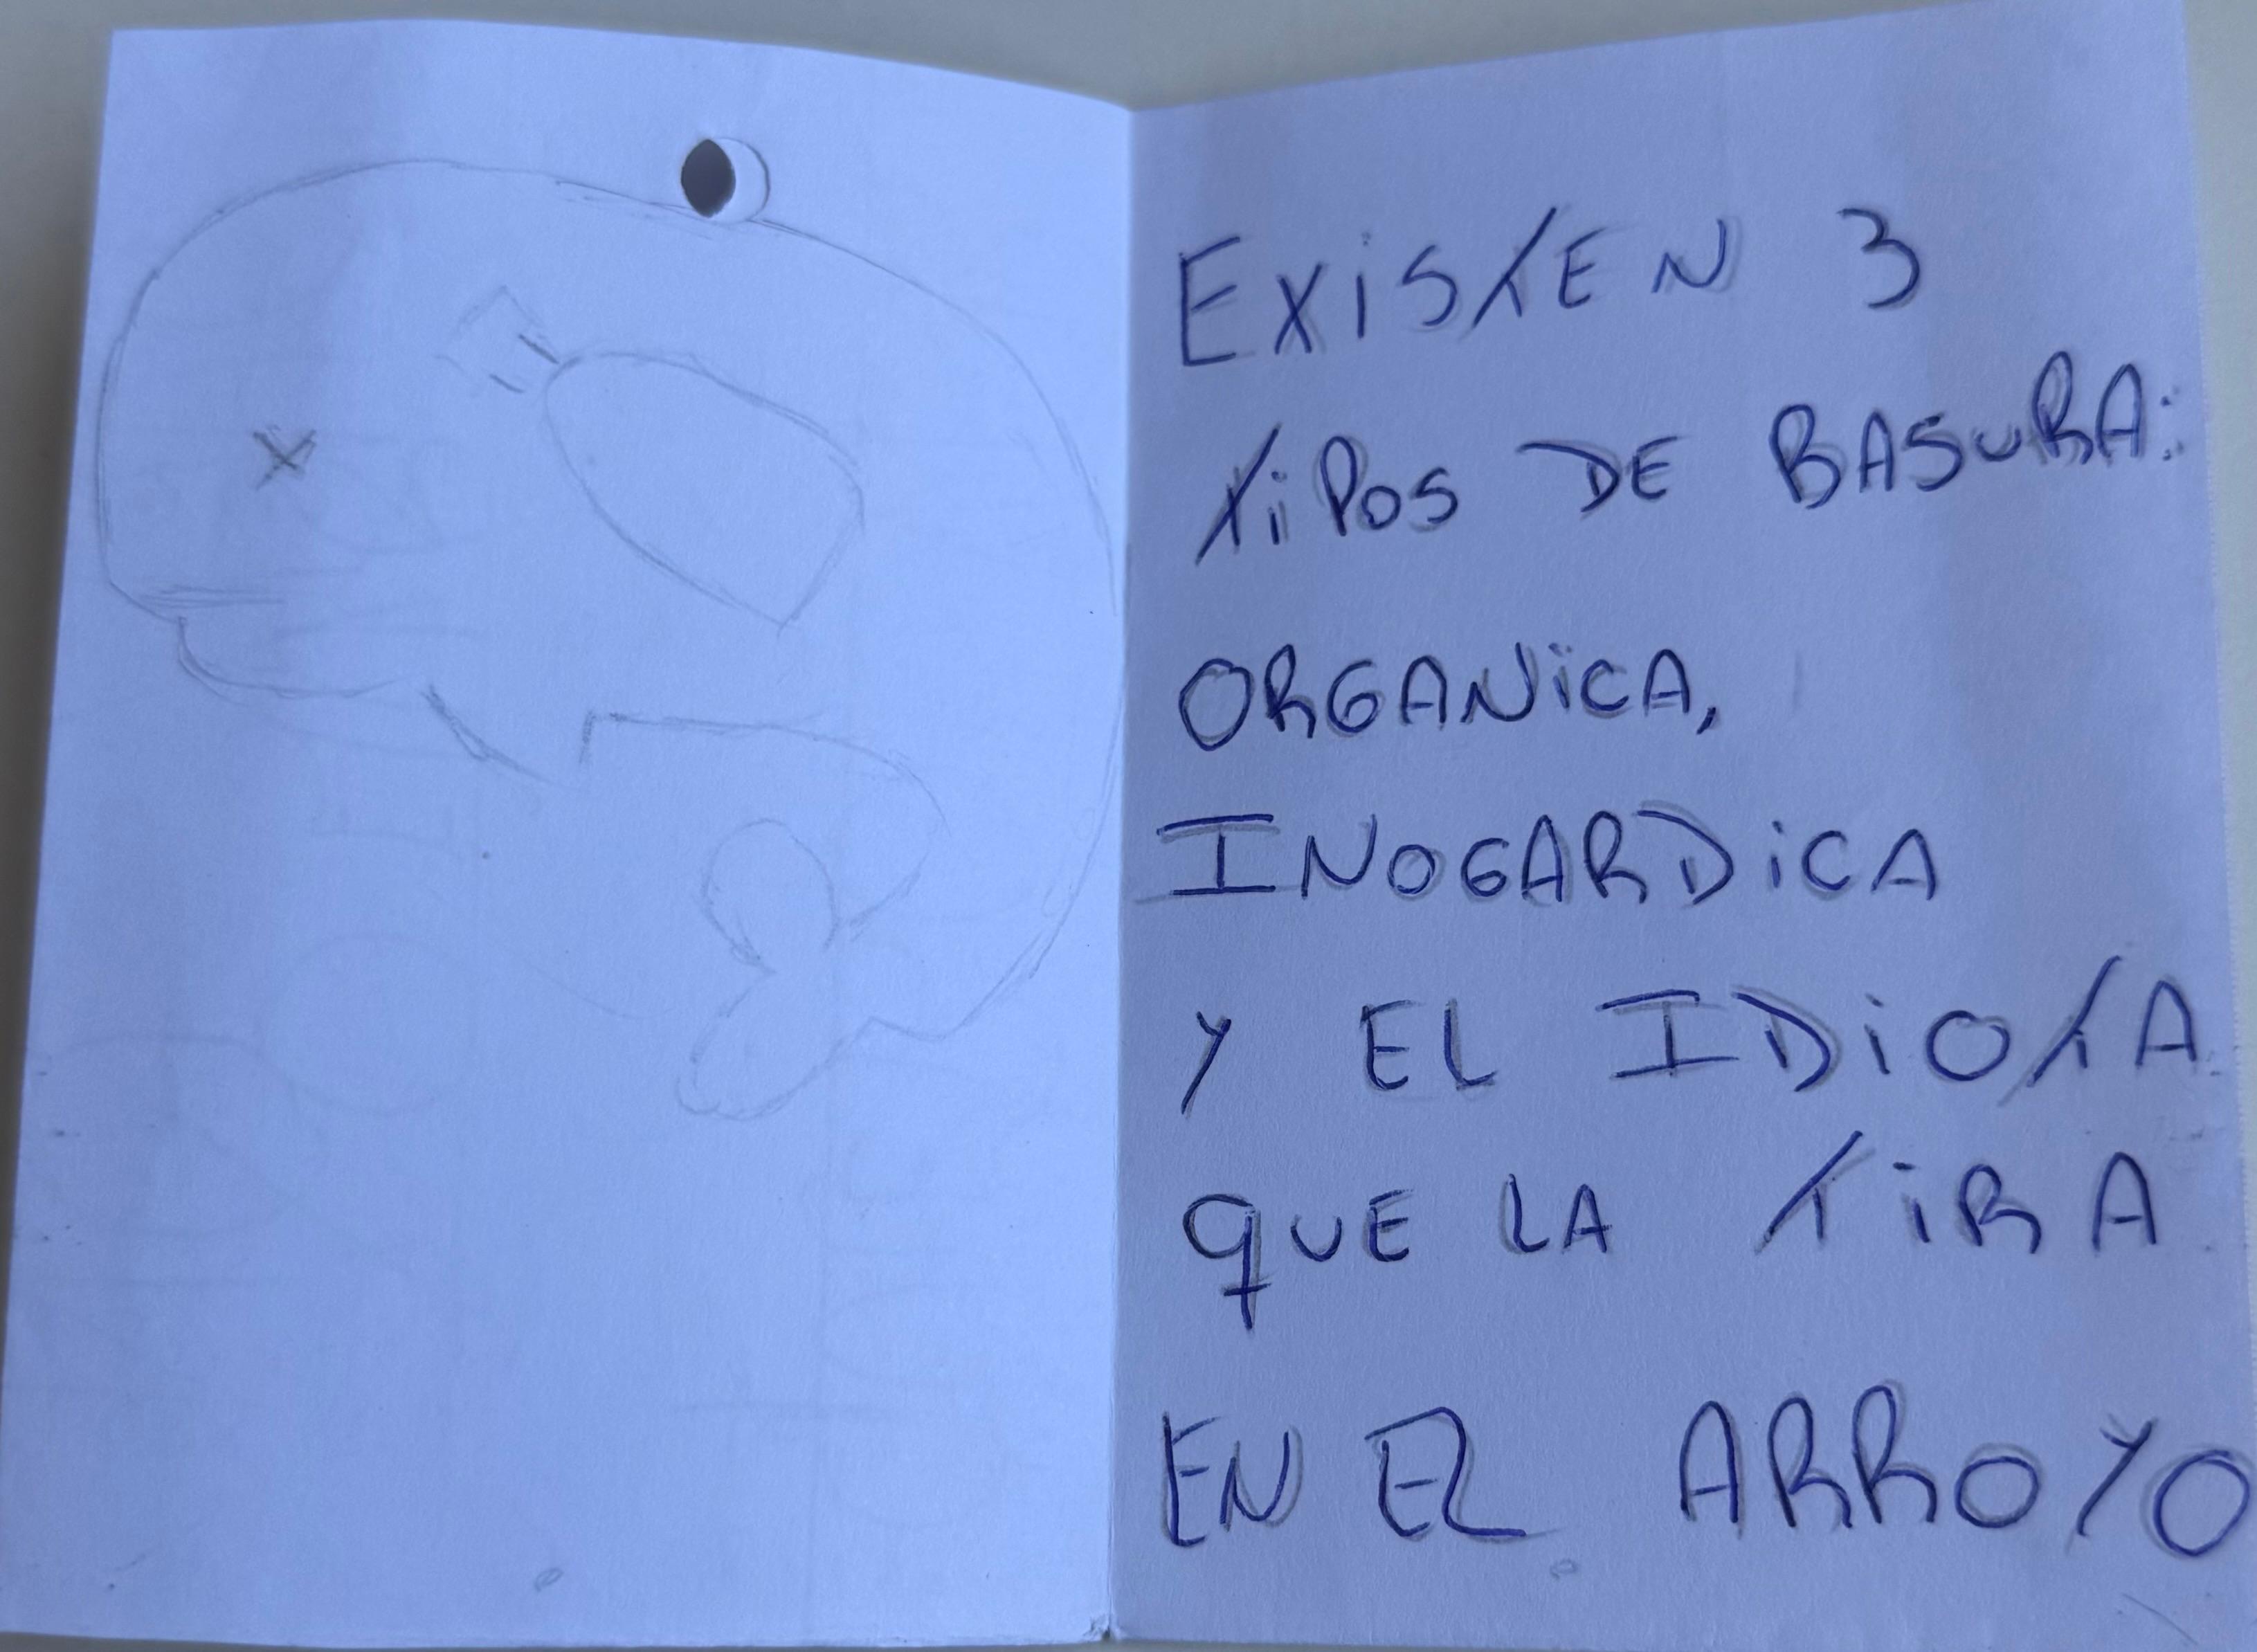 EXiSTEN 3
TiPOS DE BASURA:
ORGANiCA,
INOGARDiCA
Y EL IDiOTA
QUE LA TiRA
EN EL ARROYO